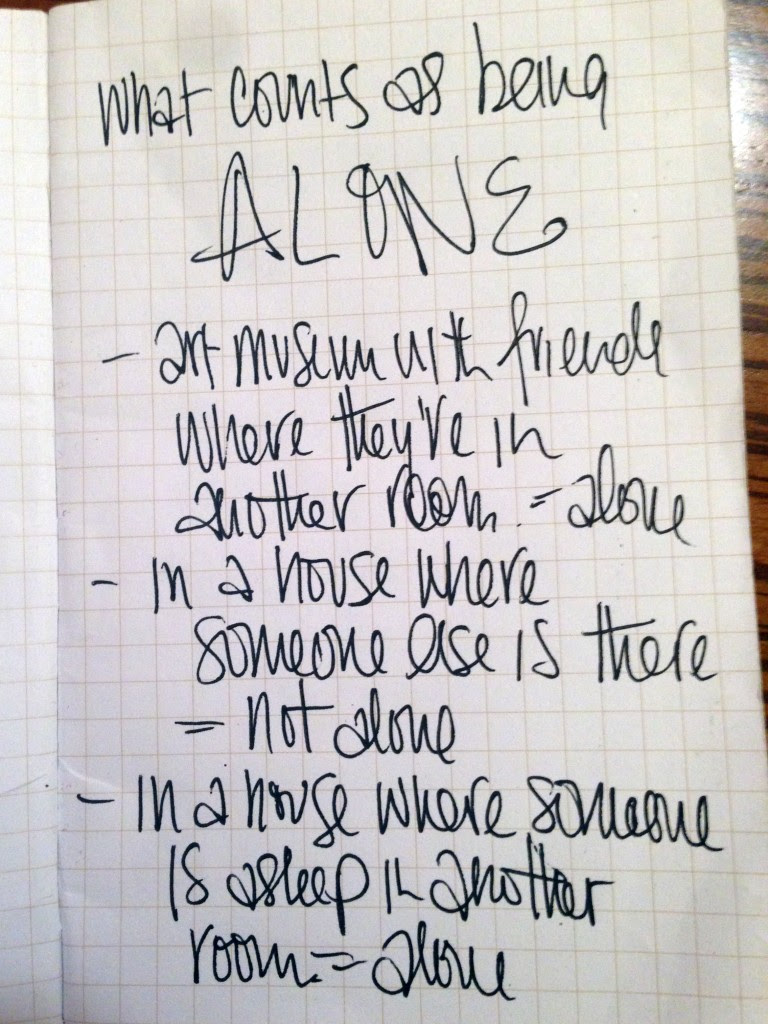 what counts as being
ALONE
- art museum with friends
where they're in
another room = alone
- in a house where
someone else is there
= not alone
- in a house where someone
is asleep in another
room = alone